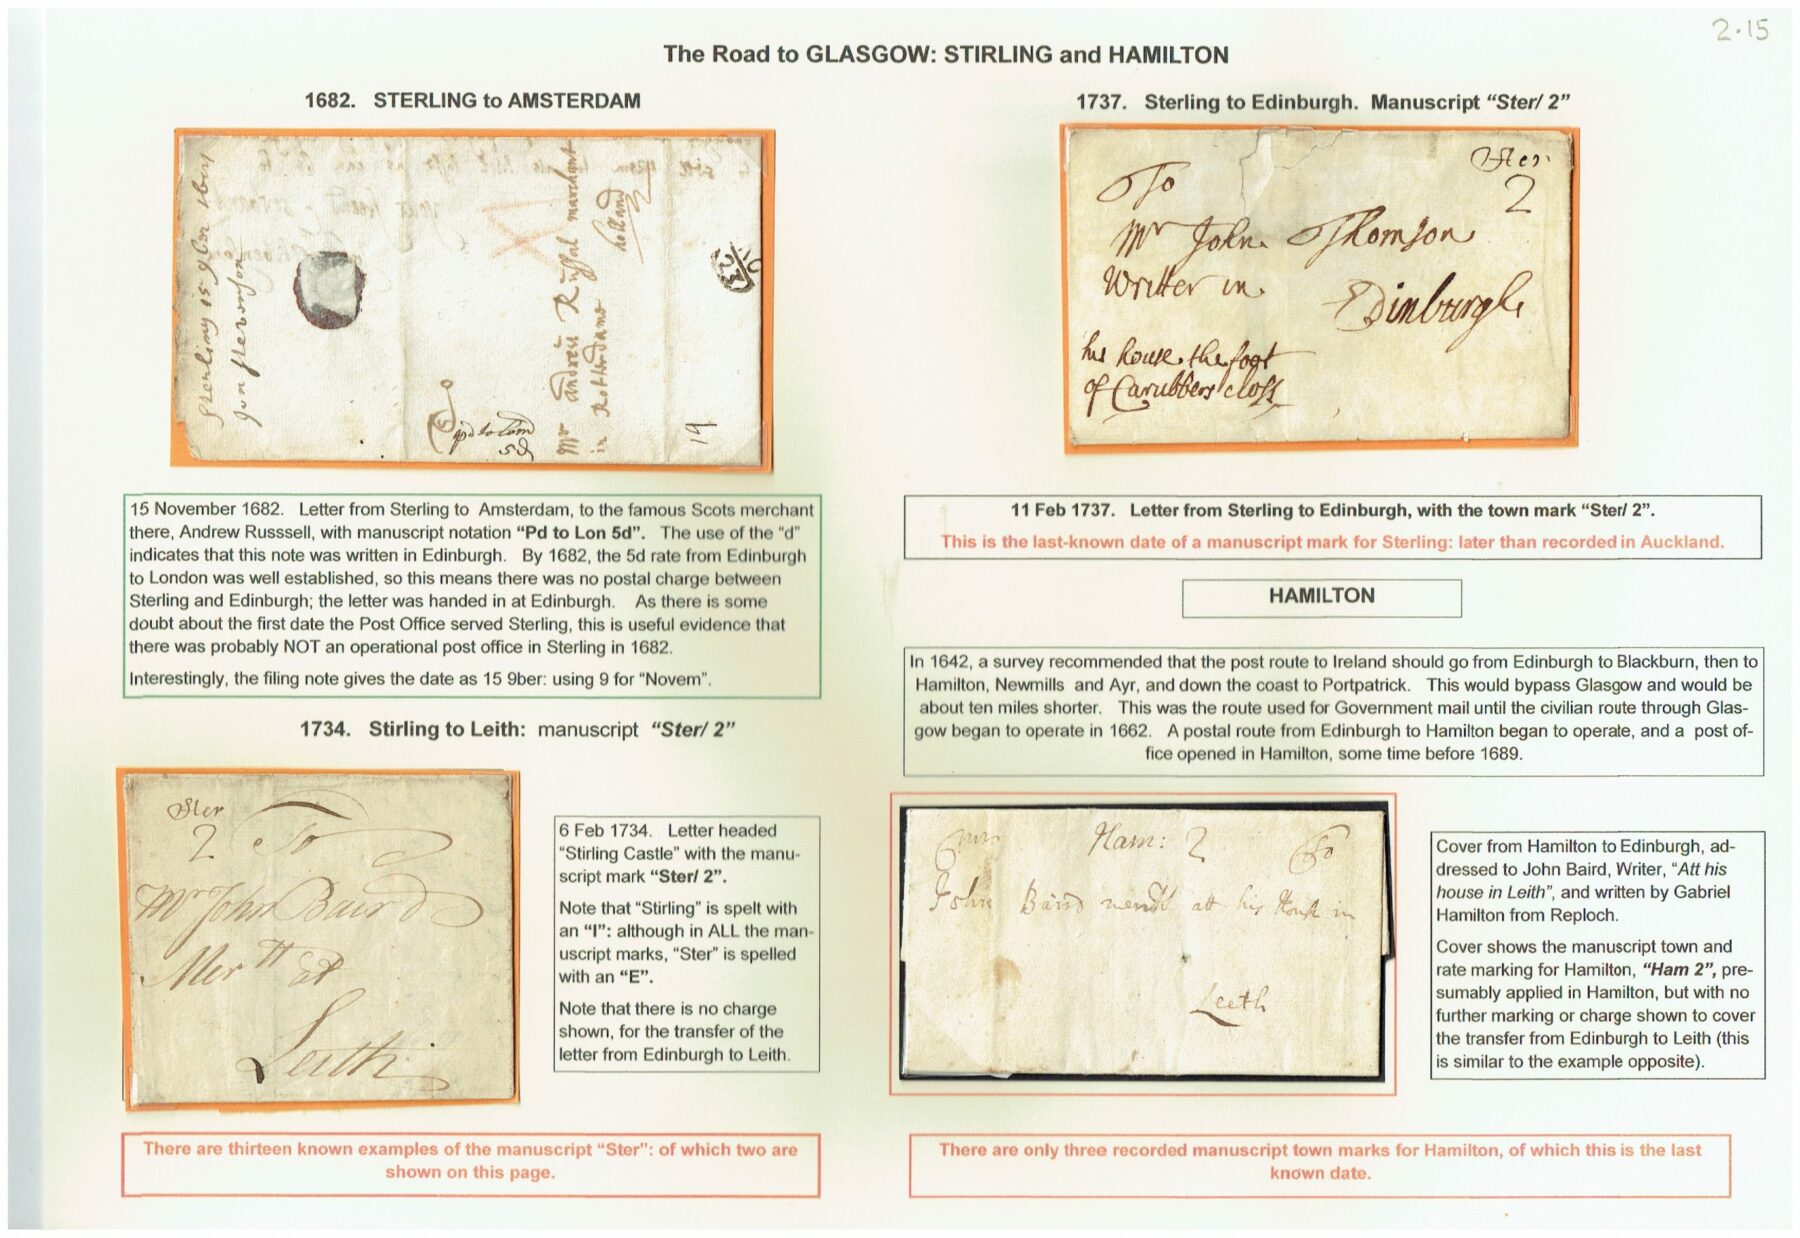 2.15
The Road to GLASGOW: STIRLING and HAMILTON
1682. STERLING to AMSTERDAM
Sterling 15 9ber 1682
pd to Lon
5d
Mr Andrew Russal marchant
in Rotterdame
holland
19
15 November 1682. Letter from Sterling to Amsterdam, to the famous Scots merchant
there, Andrew Russsell, with manuscript notation “Pd to Lon 5d”. The use of the “d”
indicates that this note was written in Edinburgh. By 1682, the 5d rate from Edinburgh
to London was well established, so this means there was no postal charge between
Sterling and Edinburgh; the letter was handed in at Edinburgh. As there is some
doubt about the first date the Post Office served Sterling, this is useful evidence that
there was probably NOT an operational post office in Sterling in 1682.
Interestingly, the filing note gives the date as 15 9ber: using 9 for “Novem”.
1734. Stirling to Leith: manuscript “Ster/ 2”
Ster
2 To
Mr John Baird
Mertt at
Leith
6 Feb 1734. Letter headed
“Stirling Castle” with the manu-
script mark “Ster/ 2”.
Note that “Stirling” is spelt with
an “I”: although in ALL the man-
uscript marks, “Ster” is spelled
with an “E”.
Note that there is no charge
shown, for the transfer of the
letter from Edinburgh to Leith.
There are thirteen known examples of the manuscript “Ster”: of which two are
shown on this page.
1737. Sterling to Edinburgh. Manuscript “Ster/ 2”
Ster
2
To
Mr John Thomson
Writter in
Edinburgh
his house the foot
of Carubbers closs
11 Feb 1737. Letter from Sterling to Edinburgh, with the town mark “Ster/ 2”.
This is the last-known date of a manuscript mark for Sterling: later than recorded in Auckland.
HAMILTON
In 1642, a survey recommended that the post route to Ireland should go from Edinburgh to Blackburn, then to
Hamilton, Newmills and Ayr, and down the coast to Portpatrick. This would bypass Glasgow and would be
about ten miles shorter. This was the route used for Government mail until the civilian route through Glas-
gow began to operate in 1662. A postal route from Edinburgh to Hamilton began to operate, and a post of-
fice opened in Hamilton, some time before 1689.
Ham: 2 To
John Baird at his House in
Leeth
Cover from Hamilton to Edinburgh, ad-
dressed to John Baird, Writer, “Att his
house in Leith”, and written by Gabriel
Hamilton from Reploch.
Cover shows the manuscript town and
rate marking for Hamilton, “Ham 2”, pre-
sumably applied in Hamilton, but with no
further marking or charge shown to cover
the transfer from Edinburgh to Leith (this
is similar to the example opposite).
There are only three recorded manuscript town marks for Hamilton, of which this is the last
known date.